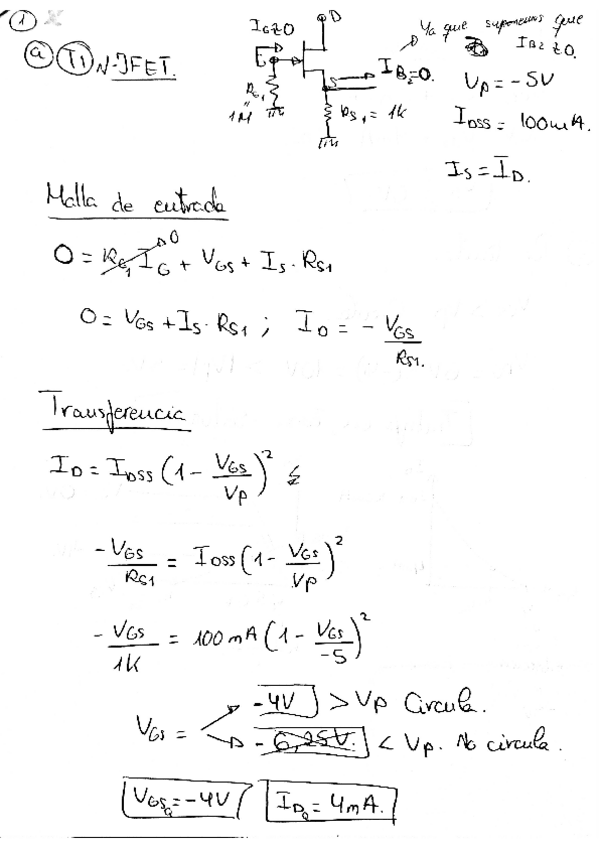 ①
ⓐ T1 N-JFET.
IG≈0
D
Ya que suponemos que
IB2≈0.
IB2=0.
G
S
RG1
"
1M
RS1 = 1k
Vp = -5V
IDSS = 100mA.
IS = ID.
Malla de entrada
0 = RG1 IG + VGS + IS · RS1
0
0 = VGS + IS · RS1 ; ID = - VGS / RS1.
Transferencia
ID = IDSS (1 - VGS / Vp)²
-VGS / RS1 = IDSS (1 - VGS / Vp)²
-VGS / 1k = 100mA (1 - VGS / -5)²
-4V > Vp Circula.
VGS =
-6,25V. < Vp. No circula.
VGSQ = -4V IDQ = 4mA.